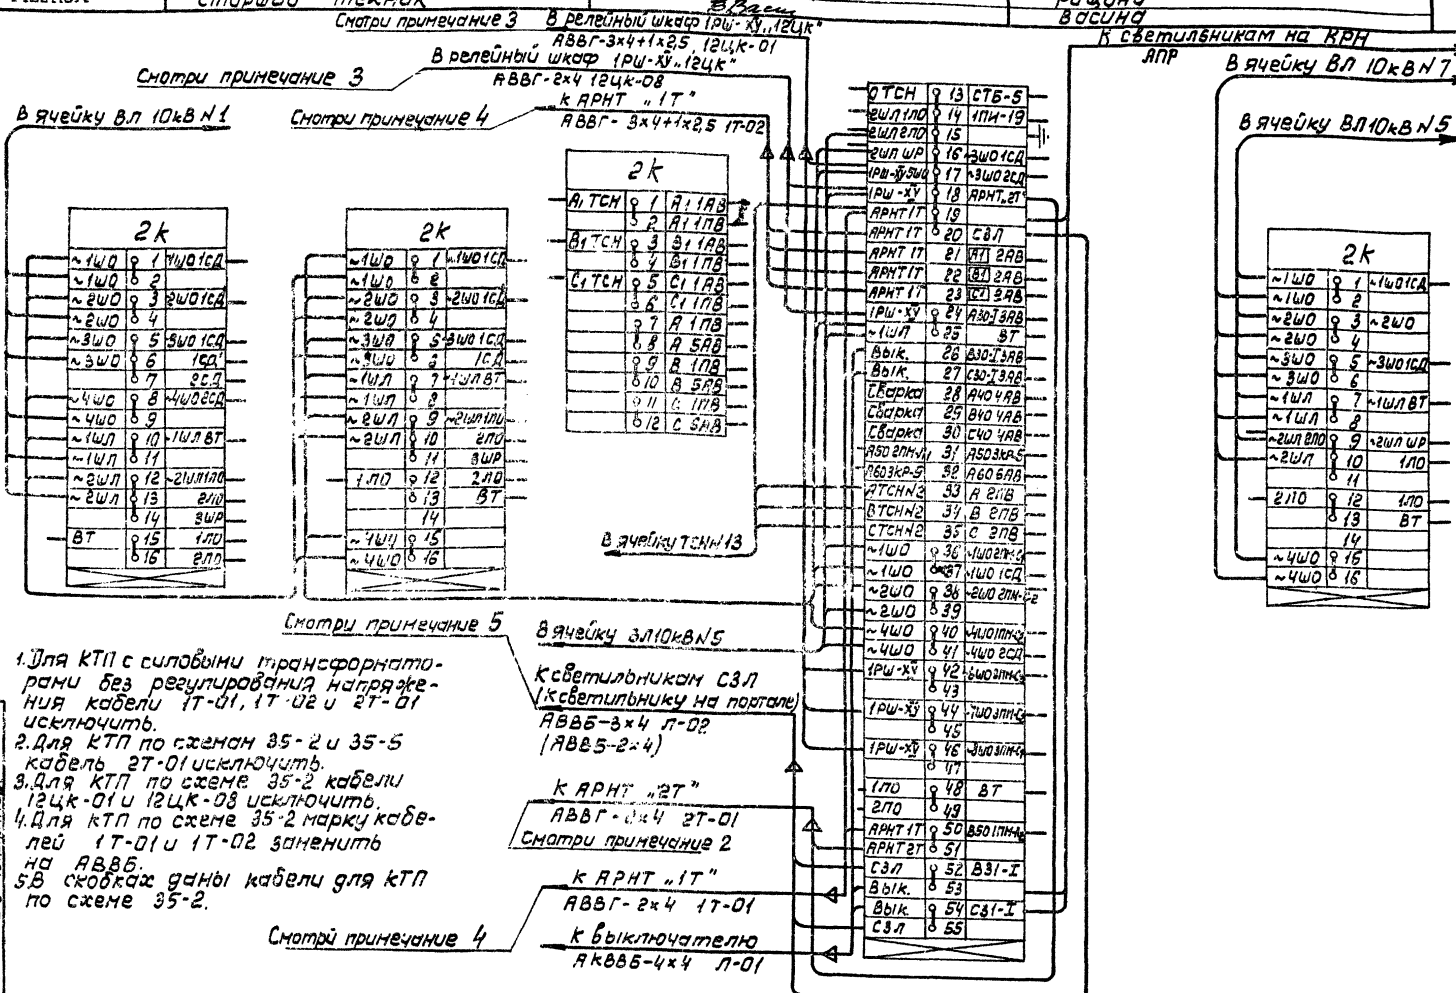 Старший техник
Васина
Смотри примечание 3
В релейный шкаф 1РШ-ХV „12ЦК"
АВВГ-3×4+1×2,5 12ЦК-01
В релейный шкаф 1РШ-ХV „12ЦК"
Смотри примечание 3
АВВГ-2×4 12ЦК-08
к АРНТ „1Т"
Смотри примечание 4
АВВГ-3×4+1×2,5 1Т-02
К светильникам на КРН
АПР
В ячейку ВЛ 10кВ N7
В ячейку ВЛ 10кВ N1
В ячейку ВЛ 10кВ N5
2К
~1ШО 1 ~1ШО1СД
~1ШО 2
~2ШО 3 ~2ШО1СД
~2ШО 4
~3ШО 5 3ШО1СД
~3ШО 6 1СД
7 2СД
~4ШО 8 ~4ШО2СД
~4ШО 9
~1ШЛ 10 ~1ШЛ ВТ
~1ШЛ 11
~2ШЛ 12 ~2ШЛ1ЛО
~2ШЛ 13 2ЛО
14 3ШР
ВТ 15 1ЛО
16 2ЛО
2К
~1ШО 1 ~1ШО1СД
~1ШО 2
~2ШО 3 ~2ШО1СД
~2ШО 4
~3ШО 5 ~3ШО1СД
~3ШО 6 1СД
~1ШЛ 7 ~1ШЛ ВТ
~1ШЛ 8
~2ШЛ 9 ~2ШЛ1ЛО
~2ШЛ 10 2ЛО
11 3ШР
1ЛО 12 2ЛО
13 ВТ
14
~4ШО 15
~4ШО 16
2К
А1 ТСН 1 А1 1АВ
2 А1 1ПВ
В1 ТСН 3 В1 1АВ
4 В1 1ПВ
С1 ТСН 5 С1 1АВ
6 С1 1ПВ
7 А 1ПВ
8 А 5АВ
9 В 1ПВ
10 В 5АВ
11 С 1ПВ
12 С 5АВ
ОТСН 13 СТБ-5
2ШЛ1ЛО 14 1ПИ-19
2ШЛ2ЛО 15
2ШЛ ШР 16 ~3ШО1СД
1РШ-ХV 5ШО 17 ~3ШО2СД
1РШ-ХV 18 АРНТ„2Т"
АРНТ1Т 19
АРНТ1Т 20 СЗЛ
АРНТ1Т 21 А1 2АВ
АРНТ1Т 22 В1 2АВ
АРНТ1Т 23 С1 2АВ
1РШ-ХV 24 А30-I3АВ
~1ШЛ 25 ВТ
Вык. 26 В30-I3АВ
Вык. 27 С30-I3АВ
Сварка 28 А40 4АВ
Сварка 29 В40 4АВ
Сварка 30 С40 4АВ
31 А503КР-5
А603КР-5 32 А60 6АВ
АТСНN2 33 А 2ПВ
ВТСНN2 34 В 2ПВ
СТСНN2 35 С 2ПВ
~1ШО 36
~1ШО 37 ~1ШО 1СД
~2ШО 38
~2ШО 39
~4ШО 40
~4ШО 41 ~4ШО 2СД
1РШ-ХV 42
43
1РШ-ХV 44
45
1РШ-ХV 46
47
1ЛО 48 ВТ
2ЛО 49
АРНТ1Т 50
АРНТ2Т 51
СЗЛ 52 В31-I
Вык. 53
Вык. 54 С31-I
СЗЛ 55
2К
~1ШО 1 ~1ШО1СД
~1ШО 2
~2ШО 3 ~2ШО
~2ШО 4
~3ШО 5 ~3ШО1СД
~3ШО 6
~1ШЛ 7 ~1ШЛ ВТ
~1ШЛ 8
~2ШЛ2ЛО 9 ~2ШЛ ШР
~2ШЛ 10 1ЛО
11
2ЛО 12 1ЛО
13 ВТ
14
~4ШО 15
~4ШО 16
В ячейку ТСНN13
Смотри примечание 5
В ячейку ВЛ10кВN5
К светильникам СЗЛ
(к светильнику на портале)
АВВБ-3×4 Л-02
(АВВБ-2×4)
К АРНТ „2Т"
АВВГ-3×4 2Т-01
Смотри примечание 2
К АРНТ „1Т"
АВВГ-2×4 1Т-01
Смотри примечание 4
К выключателю
АКВВБ-4×4 Л-01
1. Для КТП с силовыми трансформато-
рами без регулирования напряже-
ния кабели 1Т-01, 1Т-02 и 2Т-01
исключить.
2. Для КТП по схемам 35-2 и 35-5
кабель 2Т-01 исключить.
3. Для КТП по схеме 35-2 кабели
12ЦК-01 и 12ЦК-08 исключить.
4. Для КТП по схеме 35-2 марку кабе-
лей 1Т-01 и 1Т-02 заменить
на АВВБ.
5. В скобках даны кабели для КТП
по схеме 35-2.